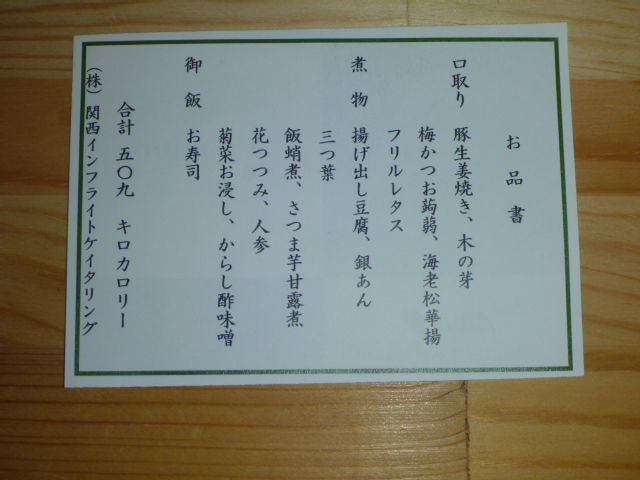 お品書
口取り 豚生姜焼き、木の芽
梅かつお蒟蒻、海老松華揚
フリルレタス
煮物 揚げ出し豆腐、銀あん
三つ葉
飯蛸煮、さつま芋甘露煮
花つつみ、人参
菊菜お浸し、からし酢味噌
御飯 お寿司
合計 五〇九 キロカロリー
(株)関西インフライトケイタリング